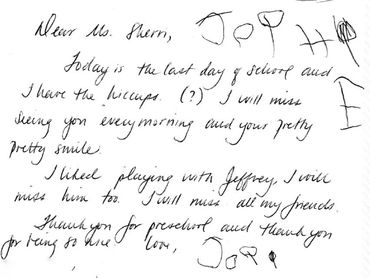 Dear Ms. Sherri,
Today is the last day of school and
I have the hiccups. (?) I will miss
seeing you every morning and your pretty
pretty smile.
I liked playing with Jeffrey, I will
miss him too. I will miss all my friends.
Thank you for preschool and thank you
for being so nice Love,